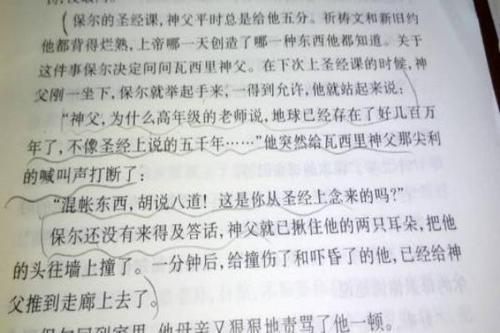 (保尔的圣经课，神父平时总是给他五分。祈祷文和新旧约
他都背得烂熟，上帝哪一天创造了哪一种东西他都知道。关于
这件事保尔决定问问瓦西里神父。在下次上圣经课的时候，神
父刚一坐下，保尔就举起手来，一得到允许，他就站起来说：
“神父，为什么高年级的老师说，地球已经存在了好几百万
年了，不像圣经上说的五千年……”他突然给瓦西里神父那尖利
的喊叫声打断了：
“混帐东西，胡说八道！这是你从圣经上念来的吗？”
保尔还没有来得及答话，神父就已揪住他的两只耳朵，把他
的头往墙上撞了。一分钟后，给撞伤了和吓昏了的他，已经给神
父推到走廊上去了。)
保尔回到家里，他母亲又狠狠地责骂了他一顿。